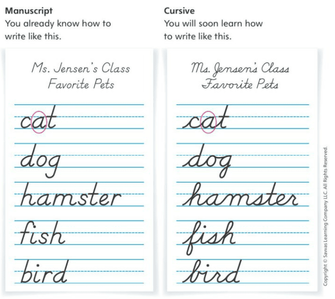 Manuscript
You already know how to
write like this.
Ms. Jensen's Class
Favorite Pets
cat
dog
hamster
fish
bird
Cursive
You will soon learn how
to write like this.
Ms. Jensen's Class
Favorite Pets
cat
dog
hamster
fish
bird
Copyright © Savvas Learning Company LLC. All Rights Reserved.